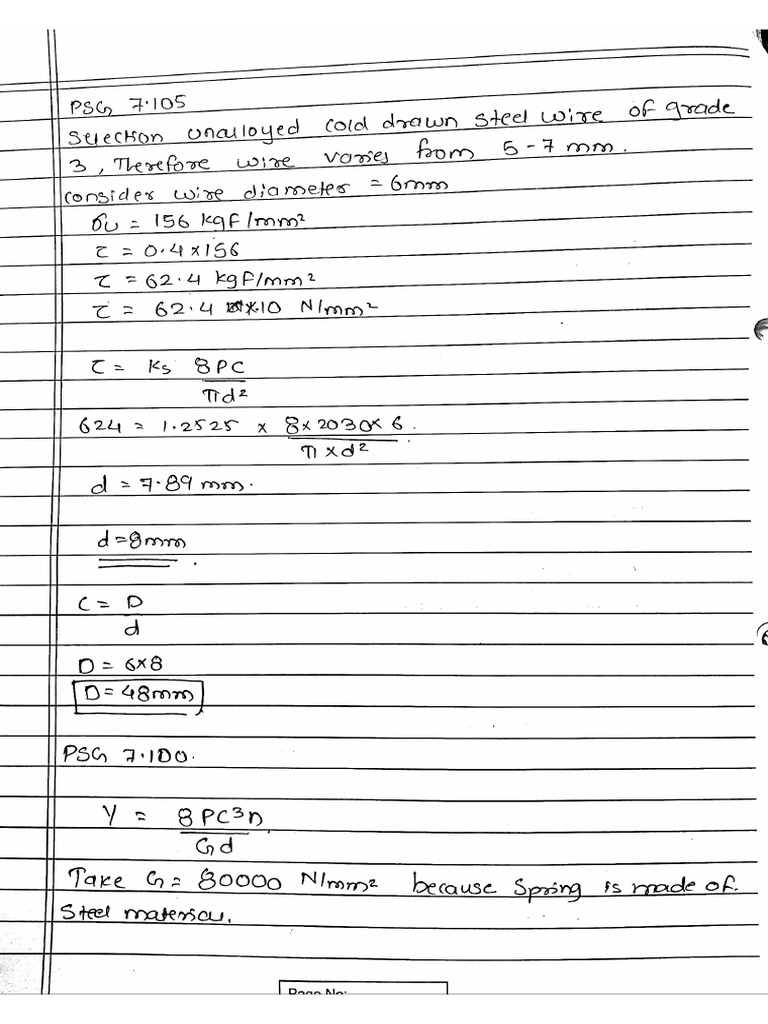 PSG 7.105
Selection unalloyed cold drawn steel wire of grade
3, Therefore wire varies from 5-7 mm.
consider wire diameter = 6mm
σu = 156 kgf/mm²
τ = 0.4×156
τ = 62.4 kgf/mm²
τ = 62.4 ×10 N/mm²
τ = Ks 8PC / πd²
624 = 1.2525 × 8×2030×6 / π×d²
d = 7.89 mm.
d=8mm
C = D / d
D = 6×8
D = 48mm
PSG 7.100.
y = 8PC³n / Gd
Take G = 80000 N/mm² because Spring is made of.
Steel material.